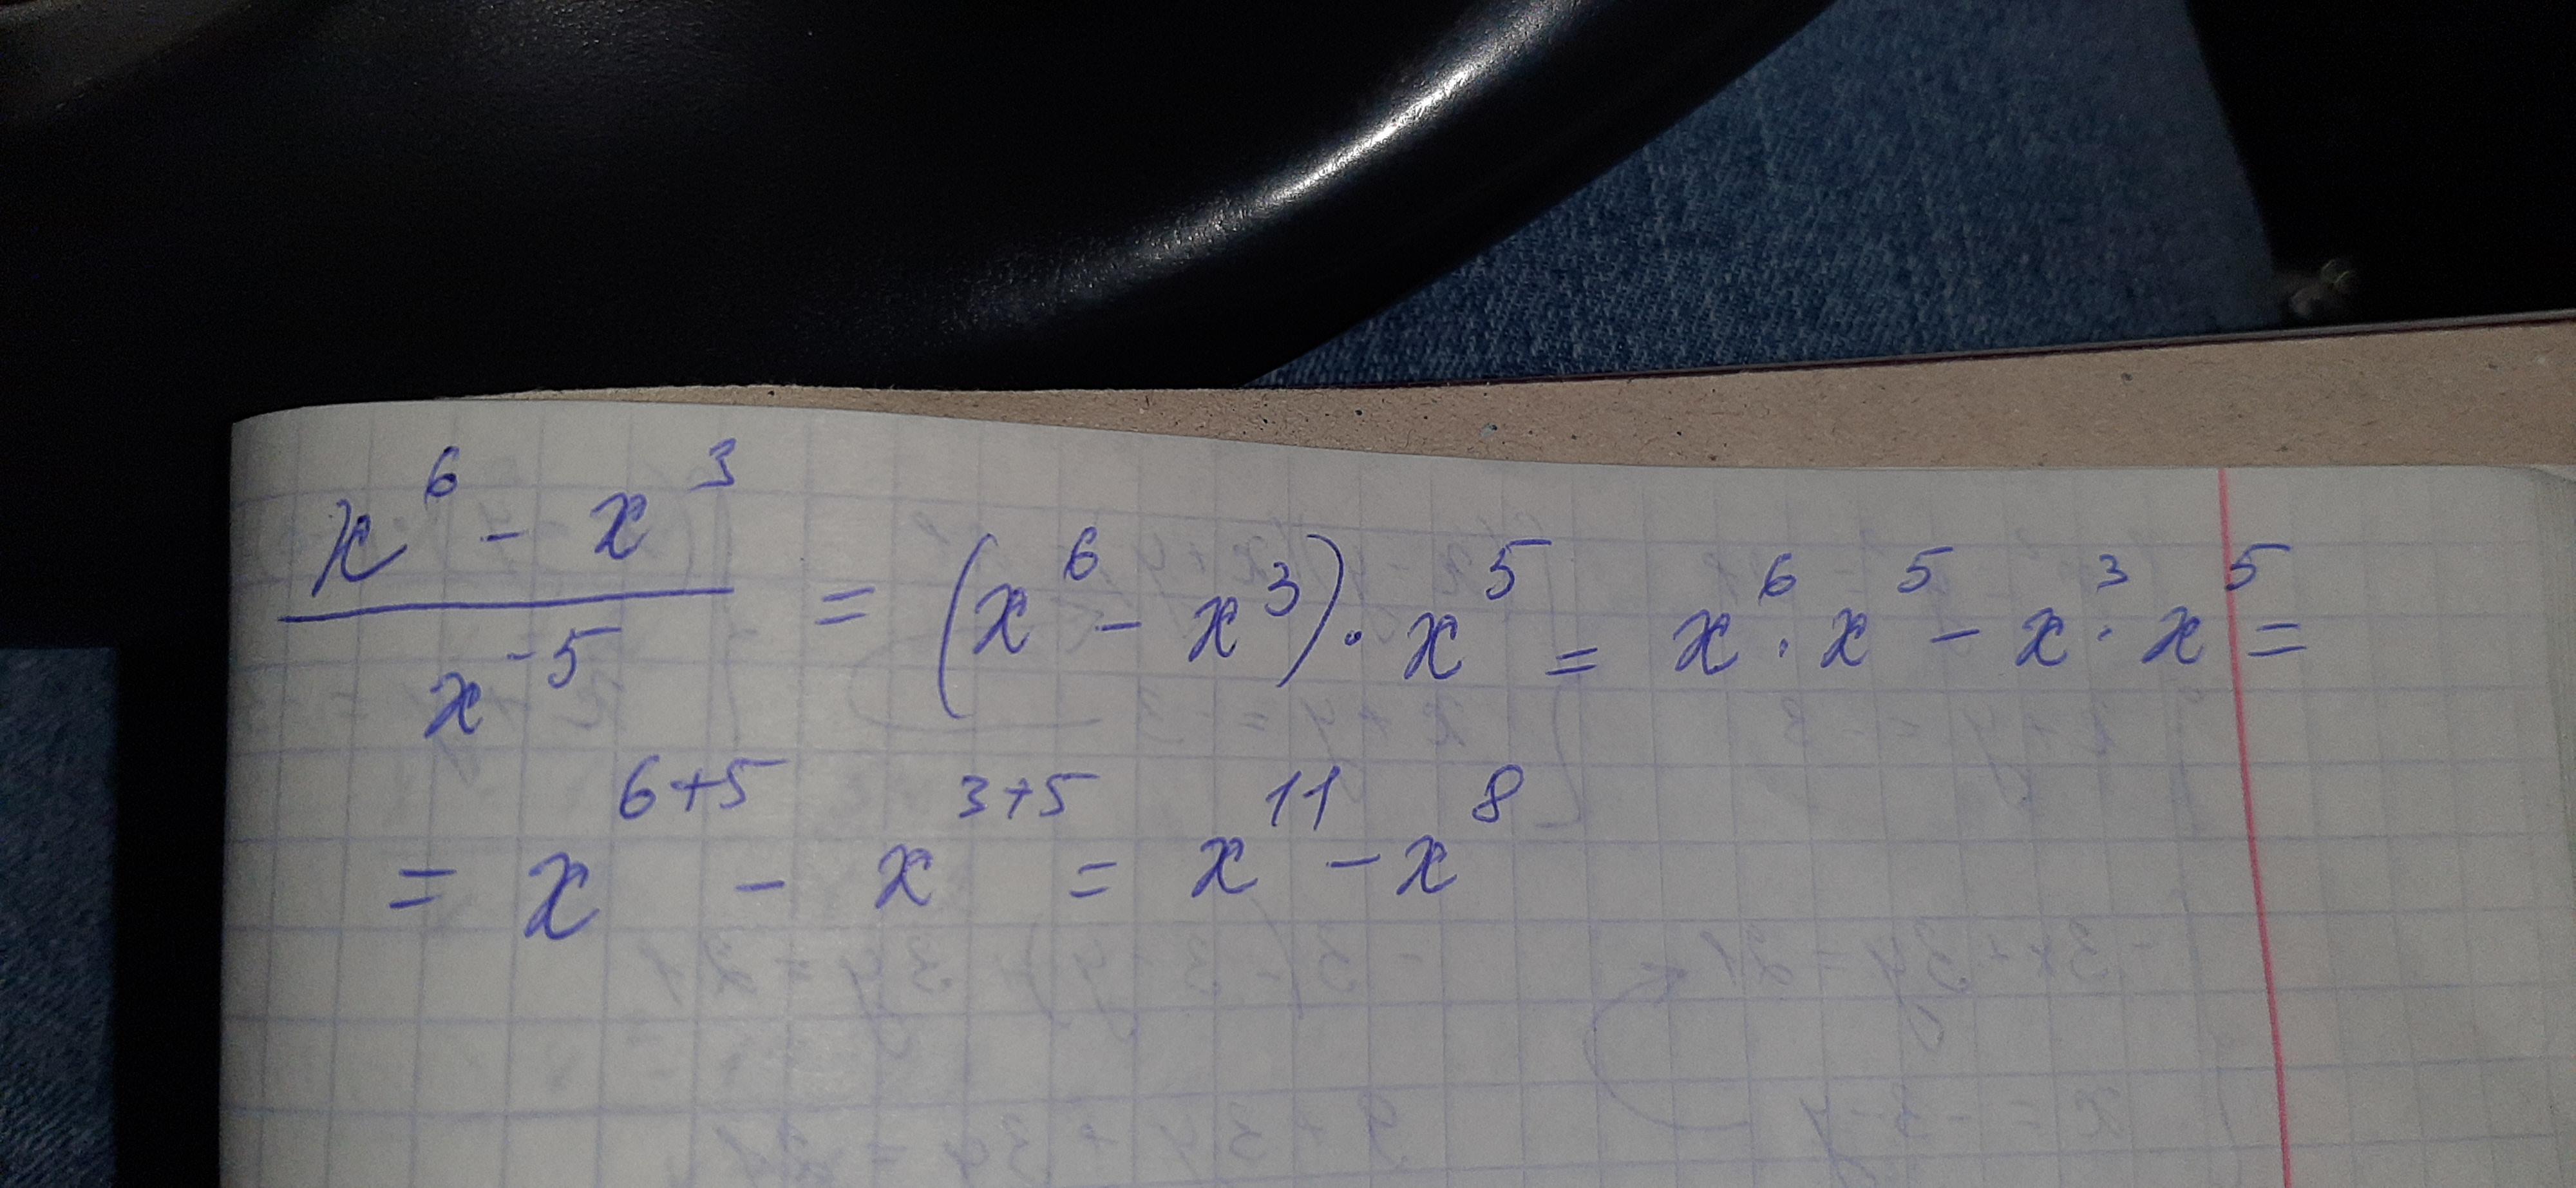 (x⁶ - x³)/x⁻⁵ = (x⁶ - x³) · x⁵ = x⁶ · x⁵ - x³ · x⁵ =
= x⁶⁺⁵ - x³⁺⁵ = x¹¹ - x⁸